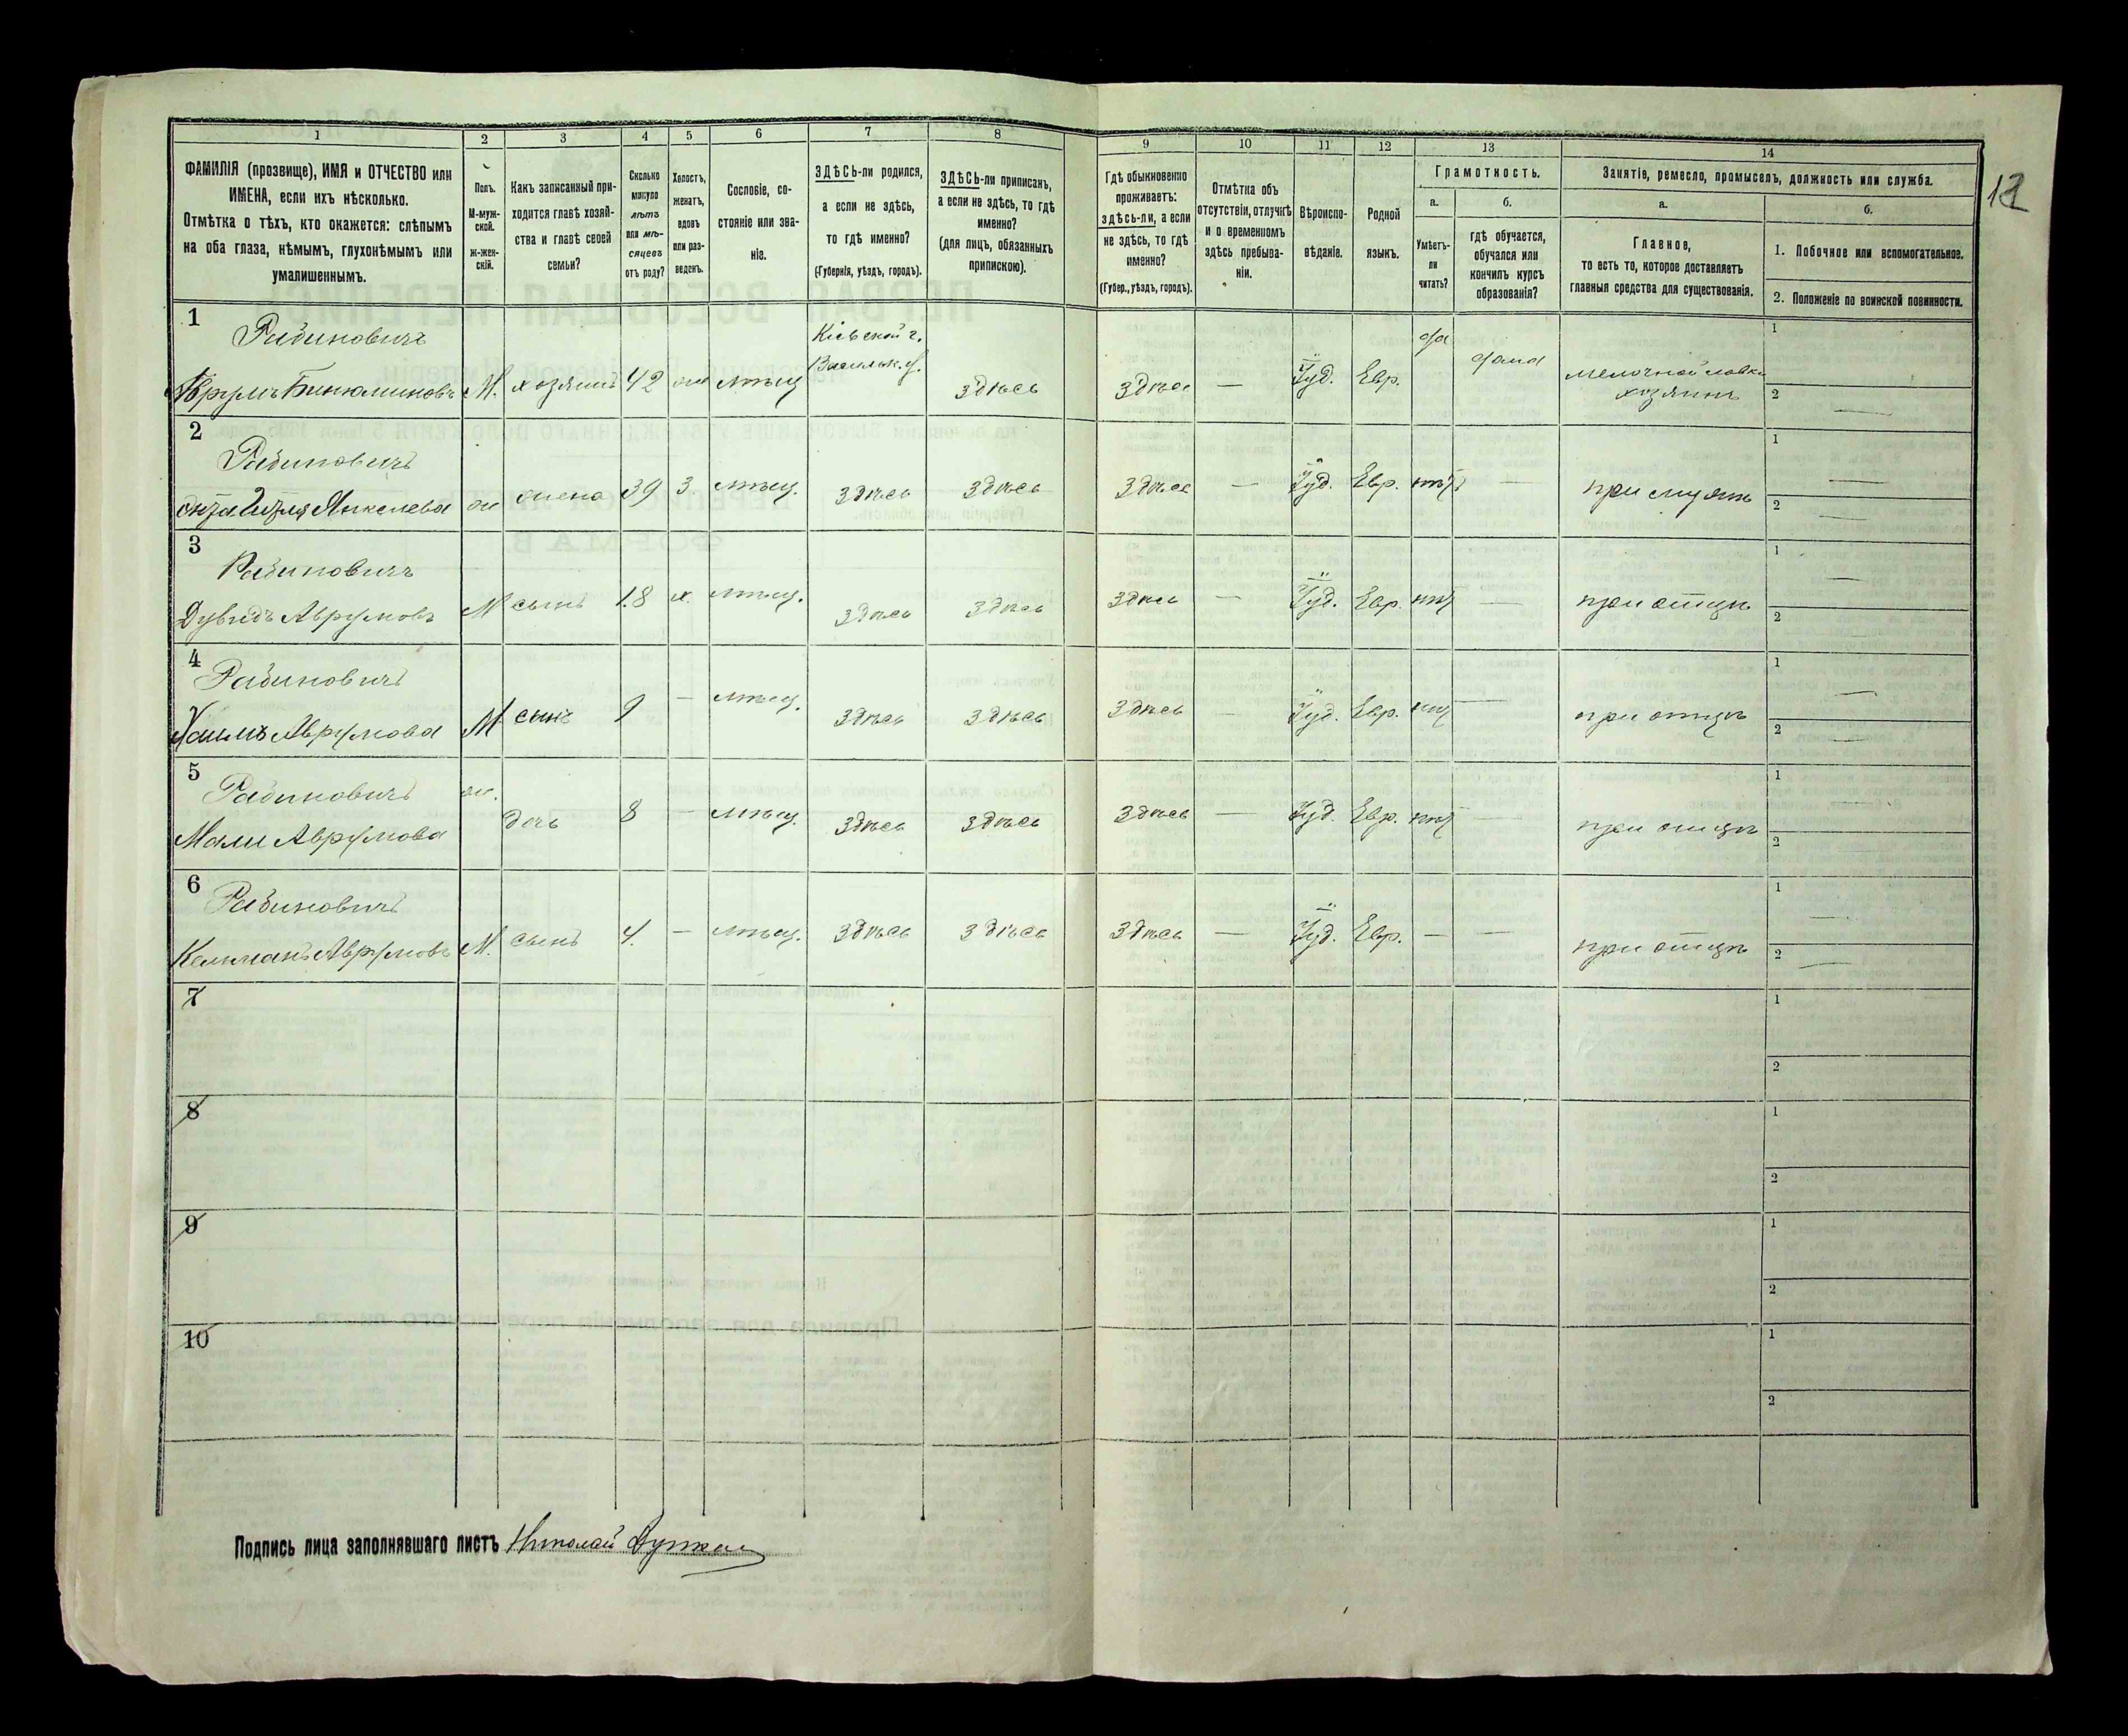 12
1 2 3 4 5 6 7 8 9 10 11 12 13 14
ФАМИЛІЯ (прозвище), ИМЯ и ОТЧЕСТВО или
ИМЕНА, если ихъ нѣсколько.
Отмѣтка о тѣхъ, кто окажется: слѣпымъ
на оба глаза, нѣмымъ, глухонѣмымъ или
умалишеннымъ.
Полъ.
М-муж-
ской.
ж-жен-
скій.
Какъ записанный при-
ходится главѣ хозяй-
ства и главѣ своей
семьи?
Сколько
минуло
лѣтъ
или мѣ-
сяцевъ
отъ роду?
Холостъ,
женатъ,
вдовъ
или раз-
веденъ.
Сословіе, со-
стояніе или зва-
ніе.
ЗДѢСЬ-ли родился,
а если не здѣсь,
то гдѣ именно?
(Губернія, уѣздъ, городъ).
ЗДѢСЬ-ли приписанъ,
а если не здѣсь, то гдѣ
именно?
(для лицъ, обязанныхъ
припискою).
Гдѣ обыкновенно
проживаетъ:
здѣсь-ли, а если
не здѣсь, то гдѣ
именно?
(Губер., уѣздъ, городъ).
Отмѣтка объ
отсутствіи, отлучкѣ
и о временномъ
здѣсь пребыва-
ніи.
Вѣроиспо-
вѣданіе.
Родной
языкъ.
Грамотность.
а.
Умѣетъ-
ли
читать?
б.
гдѣ обучается,
обучался или
кончилъ курсъ
образованія?
Занятіе, ремесло, промыселъ, должность или служба.
а.
Главное,
то есть то, которое доставляетъ
главныя средства для существованія.
б.
1. Побочное или вспомогательное.
2. Положеніе по воинской повинности.
1
Рабиновичъ Кіевской г. да дома мелочной лавки 1
Аврумъ Бинюминовъ М. хозяинъ 42 ж мѣщ Васильк. у. здѣсь здѣсь — Іуд. Евр. хозяинъ 2 —
2
Рабиновичъ 1 —
Янкелева ж жена 39 з. мѣщ. здѣсь здѣсь здѣсь — Іуд. Евр. нѣтъ — при мужѣ 2 —
3
Рабиновичъ 1 —
Дувидъ Аврумовъ М сынъ 18 х. мѣщ. здѣсь здѣсь здѣсь — Іуд. Евр. нѣтъ — при отцѣ 2 —
4
Рабиновичъ 1 —
Хаимъ Аврумовъ М сынъ 9 — мѣщ. здѣсь здѣсь здѣсь — Іуд. Евр. нѣтъ — при отцѣ 2 —
5
Рабиновичъ ж. 1 —
Мали Аврумова дочь 8 — мѣщ. здѣсь здѣсь здѣсь — Іуд. Евр. нѣтъ — при отцѣ 2 —
6
Рабиновичъ 1 —
Кельманъ Аврумовъ М. сынъ 4. — мѣщ. здѣсь здѣсь здѣсь — Іуд. Евр. — — при отцѣ 2 —
7 1
2
8 1
2
9 1
2
10 1
2
Подпись лица заполнявшаго листъ Николай